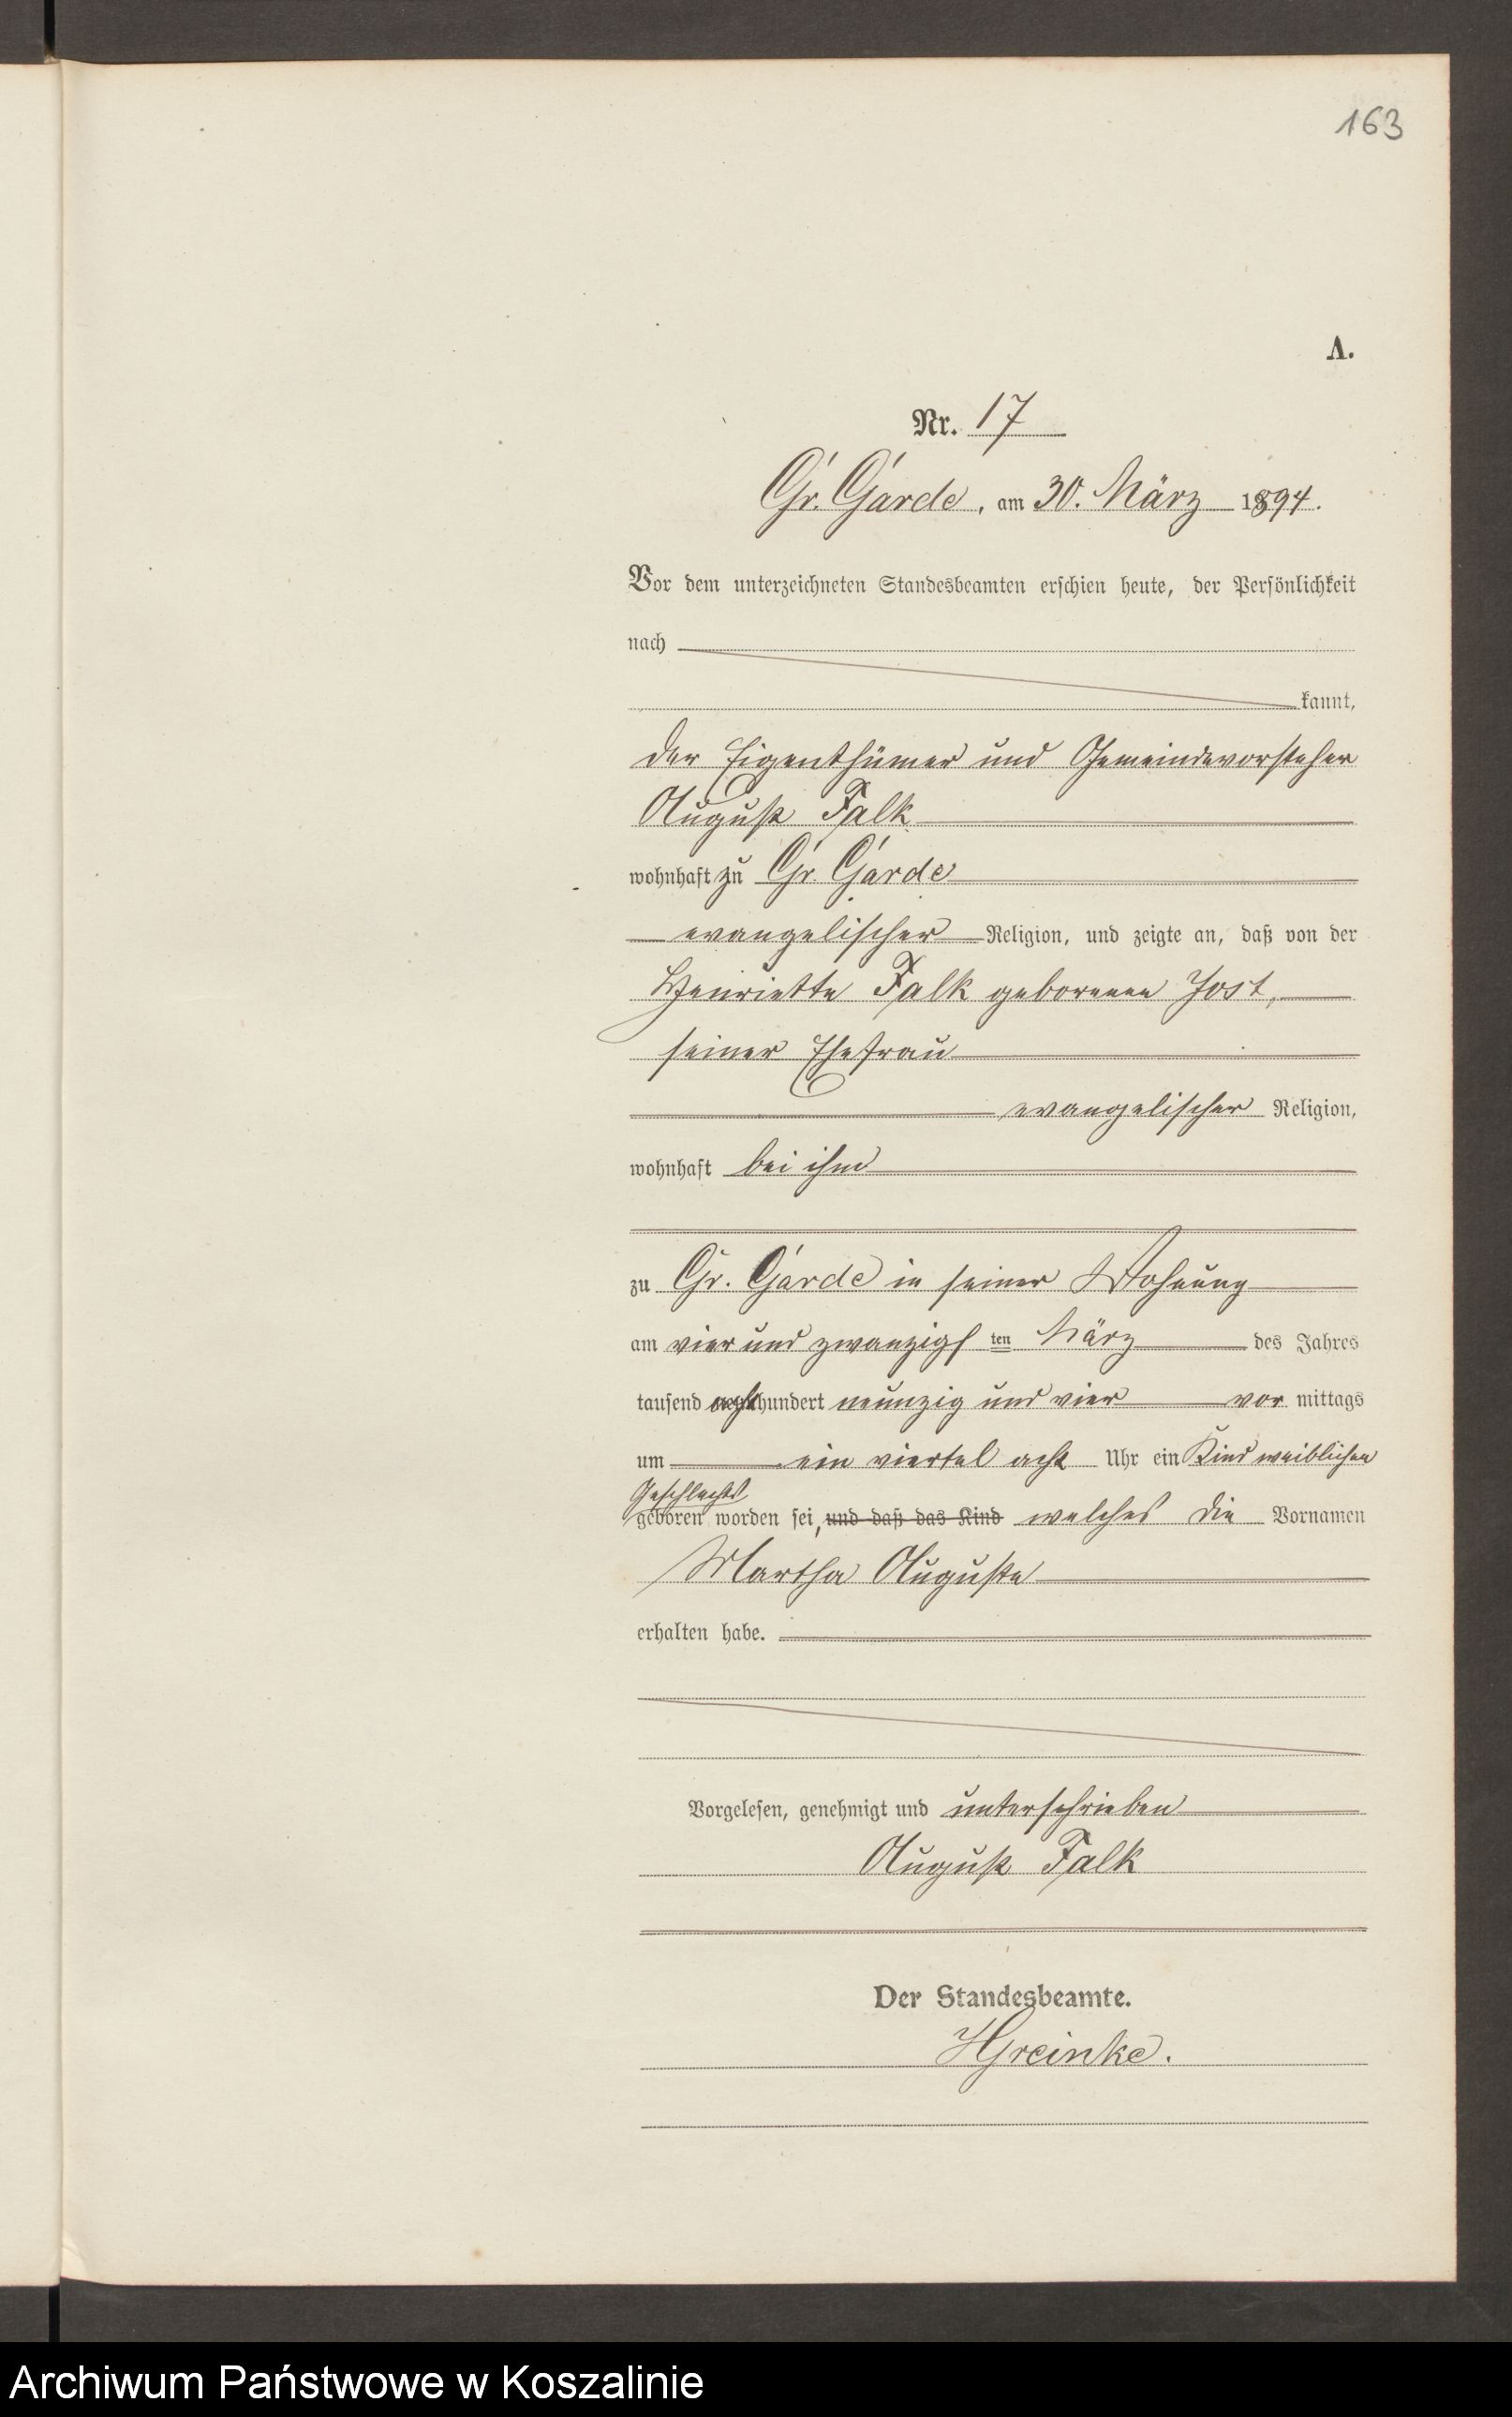 163
A.
Nr. 17
Gr. Garde, am 30. März 1894.
Vor dem unterzeichneten Standesbeamten erschien heute, der Persönlichkeit
nach
kannt,
der Eigenthümer und Gemeindevorsteher
August Falk
wohnhaft zu Gr. Garde
evangelischer Religion, und zeigte an, daß von der
Henriette Falk geborenen Jost,
seiner Ehefrau
evangelischer Religion,
wohnhaft bei ihm
zu Gr. Garde in seiner Wohnung
am vier und zwanzigsten März des Jahres
tausend achthundert neunzig und vier vor mittags
um ein viertel acht Uhr ein Kind weiblichen
Geschlechts
geboren worden sei, und daß das Kind welches die Vornamen
Martha Auguste
erhalten habe.
Vorgelesen, genehmigt und unterschrieben
August Falk
Der Standesbeamte.
HGreinke.
Archiwum Państwowe w Koszalinie